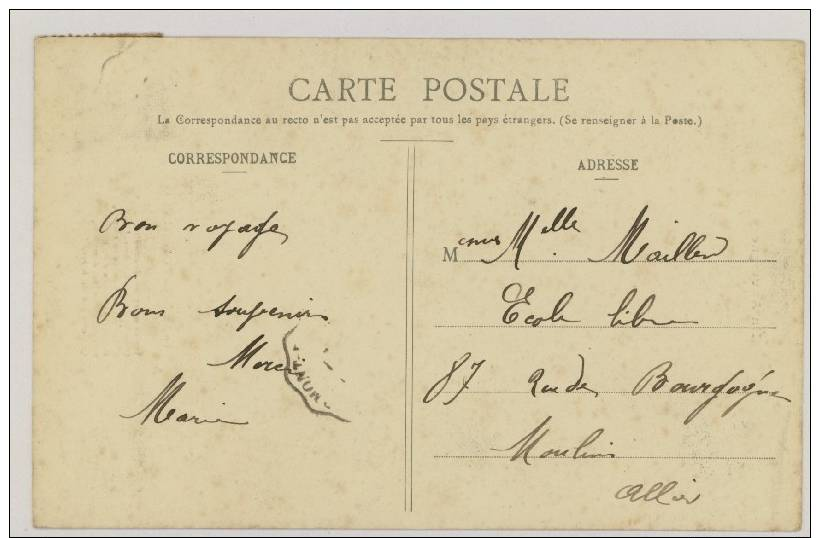 CARTE POSTALE
La Correspondance au recto n'est pas acceptée par tous les pays étrangers. (Se renseigner à la Poste.)
CORRESPONDANCE
Bon voyage
Bons souvenirs
Merci
Marie
ADRESSE
M Melle
Ecole libre
87 Rue de Bourgogne
Moulins
Allier